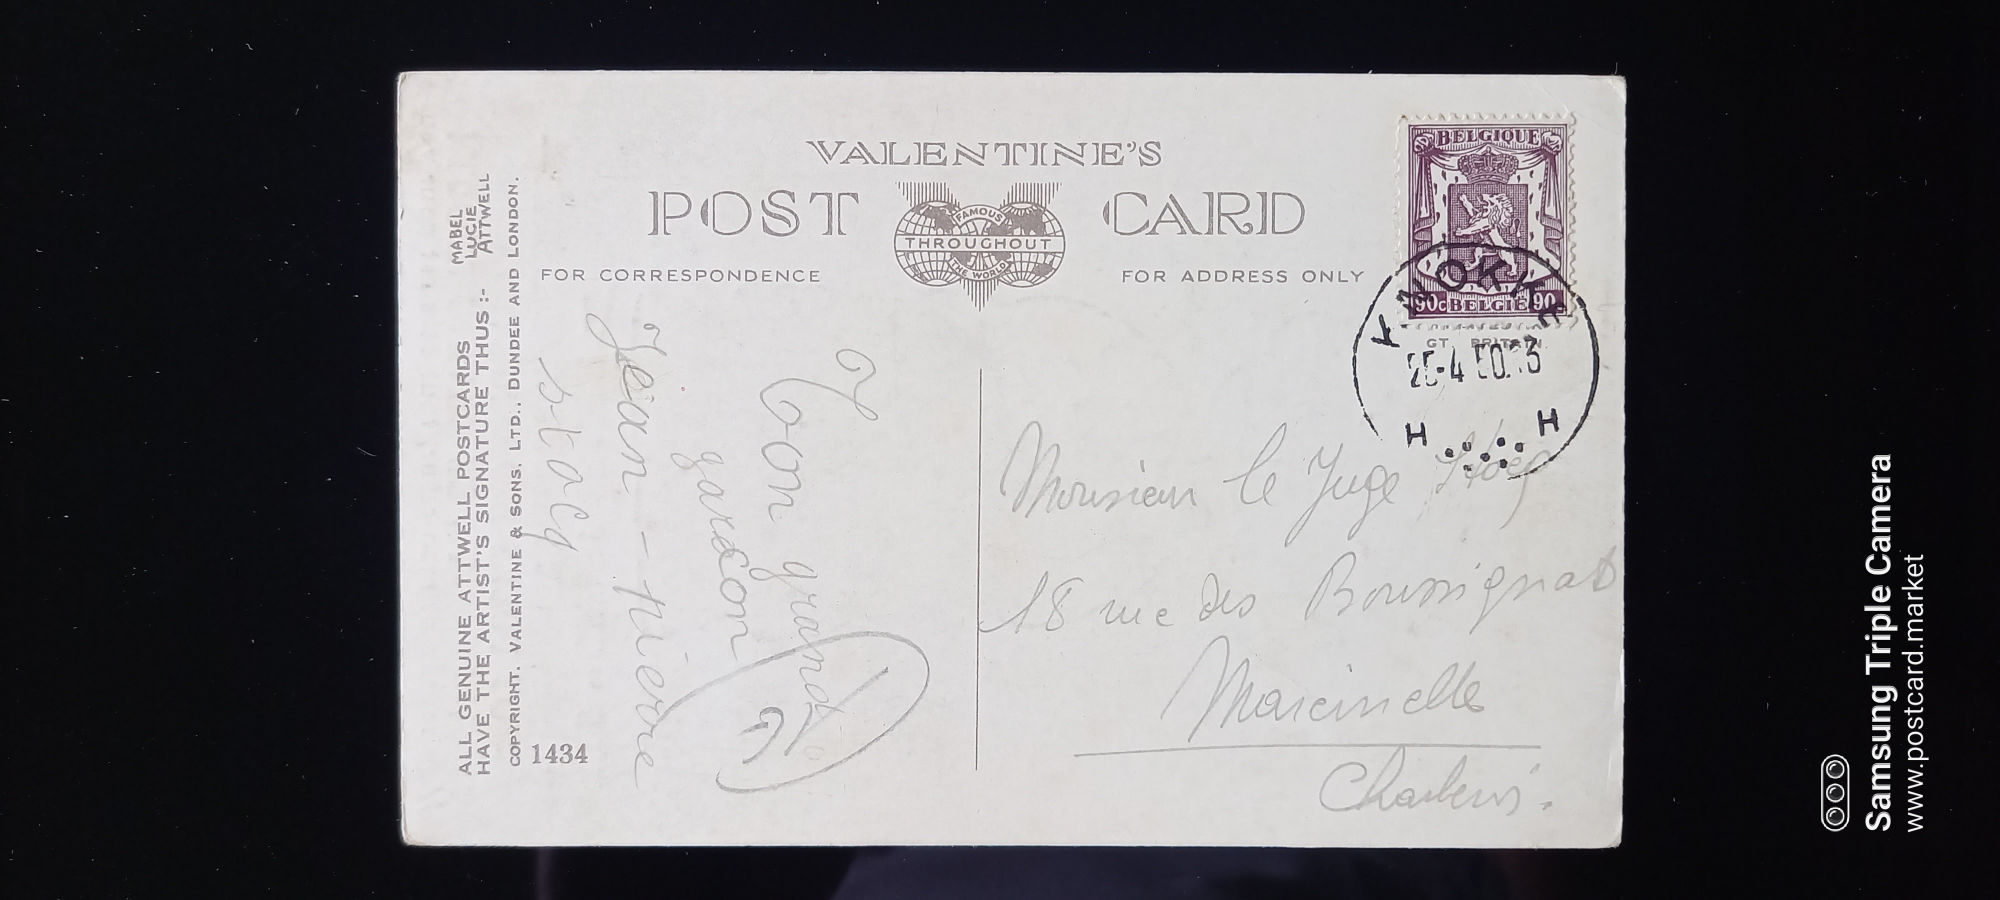 VALENTINE'S
POST CARD
FAMOUS
THROUGHOUT
THE WORLD
FOR CORRESPONDENCE
FOR ADDRESS ONLY
ALL GENUINE ATTWELL POSTCARDS
HAVE THE ARTIST'S SIGNATURE THUS :-
MABEL
LUCIE
ATTWELL
COPYRIGHT. VALENTINE & SONS, LTD., DUNDEE AND LONDON.
1434
Ton grand
garcon
Jean-pierre
BELGIQUE
90c BELGIE 90
GT. BRITAIN.
KNOKKE
-4 50.13
H H
Monsieur le Juge
18 rue des
Marcinelle
Charleroi.
Samsung Triple Camera
www.postcard.market